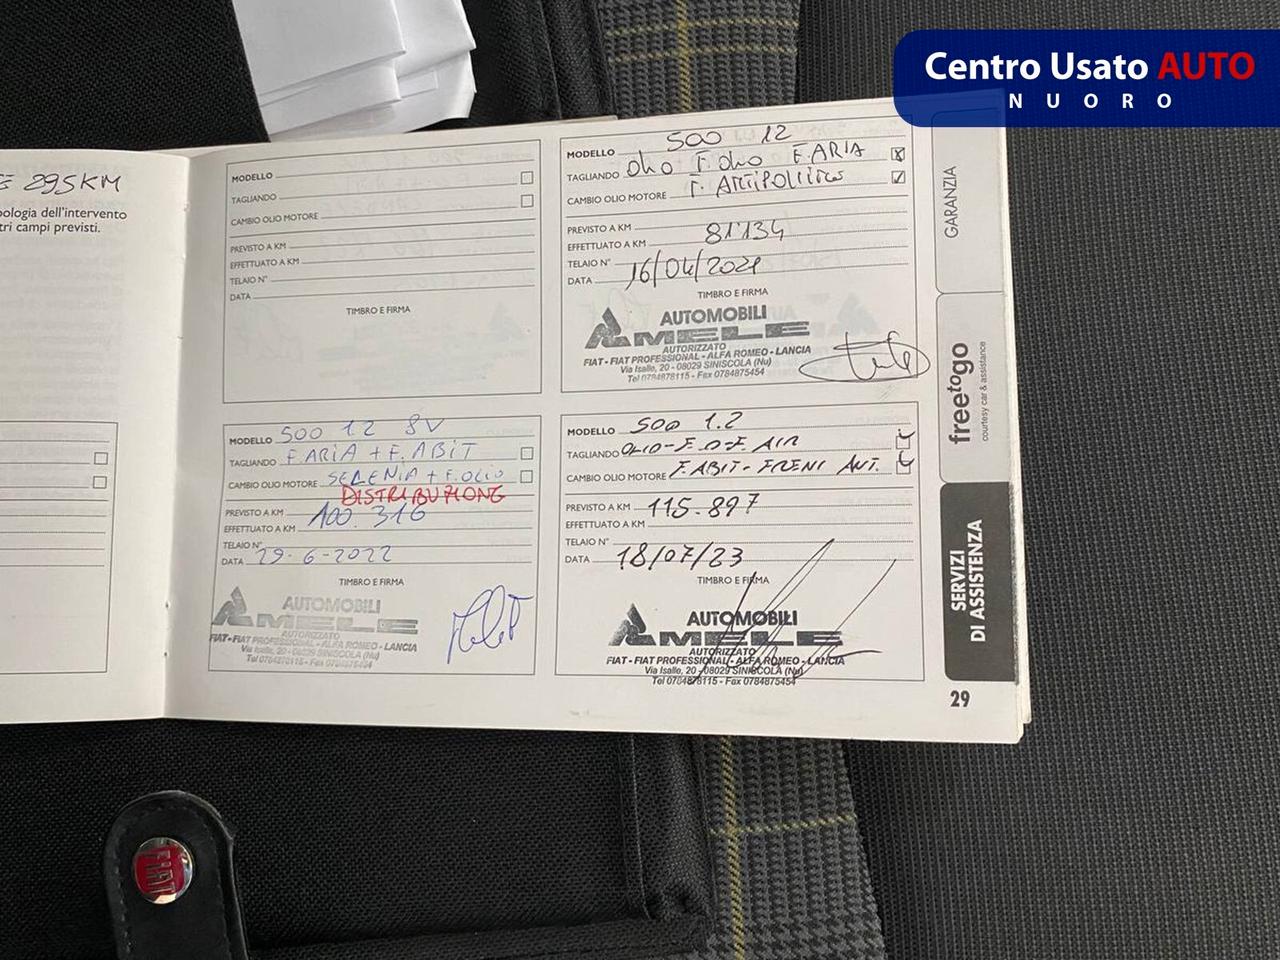 Centro Usato AUTO
NUORO
895KM
pologia dell'intervento
tri campi previsti.
MODELLO
TAGLIANDO
CAMBIO OLIO MOTORE
PREVISTO A KM
EFFETTUATO A KM
TELAIO N°
DATA
TIMBRO E FIRMA
MODELLO 500 12
TAGLIANDO Olio F. Olio F. ARIA
CAMBIO OLIO MOTORE F. ANTIPOLLINE
PREVISTO A KM
EFFETTUATO A KM 81134
TELAIO N°
DATA 16/04/2021
TIMBRO E FIRMA
AUTOMOBILI
MELE
AUTORIZZATO
FIAT - FIAT PROFESSIONAL - ALFA ROMEO - LANCIA
Via Isalle, 20 - 08029 SINISCOLA (Nu)
Tel 0784878115 - Fax 0784875454
MODELLO 500 12 8V
TAGLIANDO F. ARIA + F. ABIT
CAMBIO OLIO MOTORE SELENIA + F. OLIO
DISTRIBUZIONE
PREVISTO A KM 100.316
EFFETTUATO A KM
TELAIO N°
DATA 29-6-2022
TIMBRO E FIRMA
AUTOMOBILI
MELE
AUTORIZZATO
FIAT - FIAT PROFESSIONAL - ALFA ROMEO - LANCIA
Via Isalle, 20 - 08029 SINISCOLA (Nu)
Tel 0784878115 - Fax 0784875454
MODELLO 500 1.2
TAGLIANDO OLIO-F.O-F. AIR
CAMBIO OLIO MOTORE F. ABIT- FRENI ANT.
PREVISTO A KM 115.897
EFFETTUATO A KM
TELAIO N°
DATA 18/07/23
TIMBRO E FIRMA
AUTOMOBILI
MELE
AUTORIZZATO
FIAT - FIAT PROFESSIONAL - ALFA ROMEO - LANCIA
Via Isalle, 20 - 08029 SINISCOLA (Nu)
Tel 0784878115 - Fax 0784875454
GARANZIA
freetogo
courtesy car & assistance
SERVIZI
DI ASSISTENZA
29
FIAT